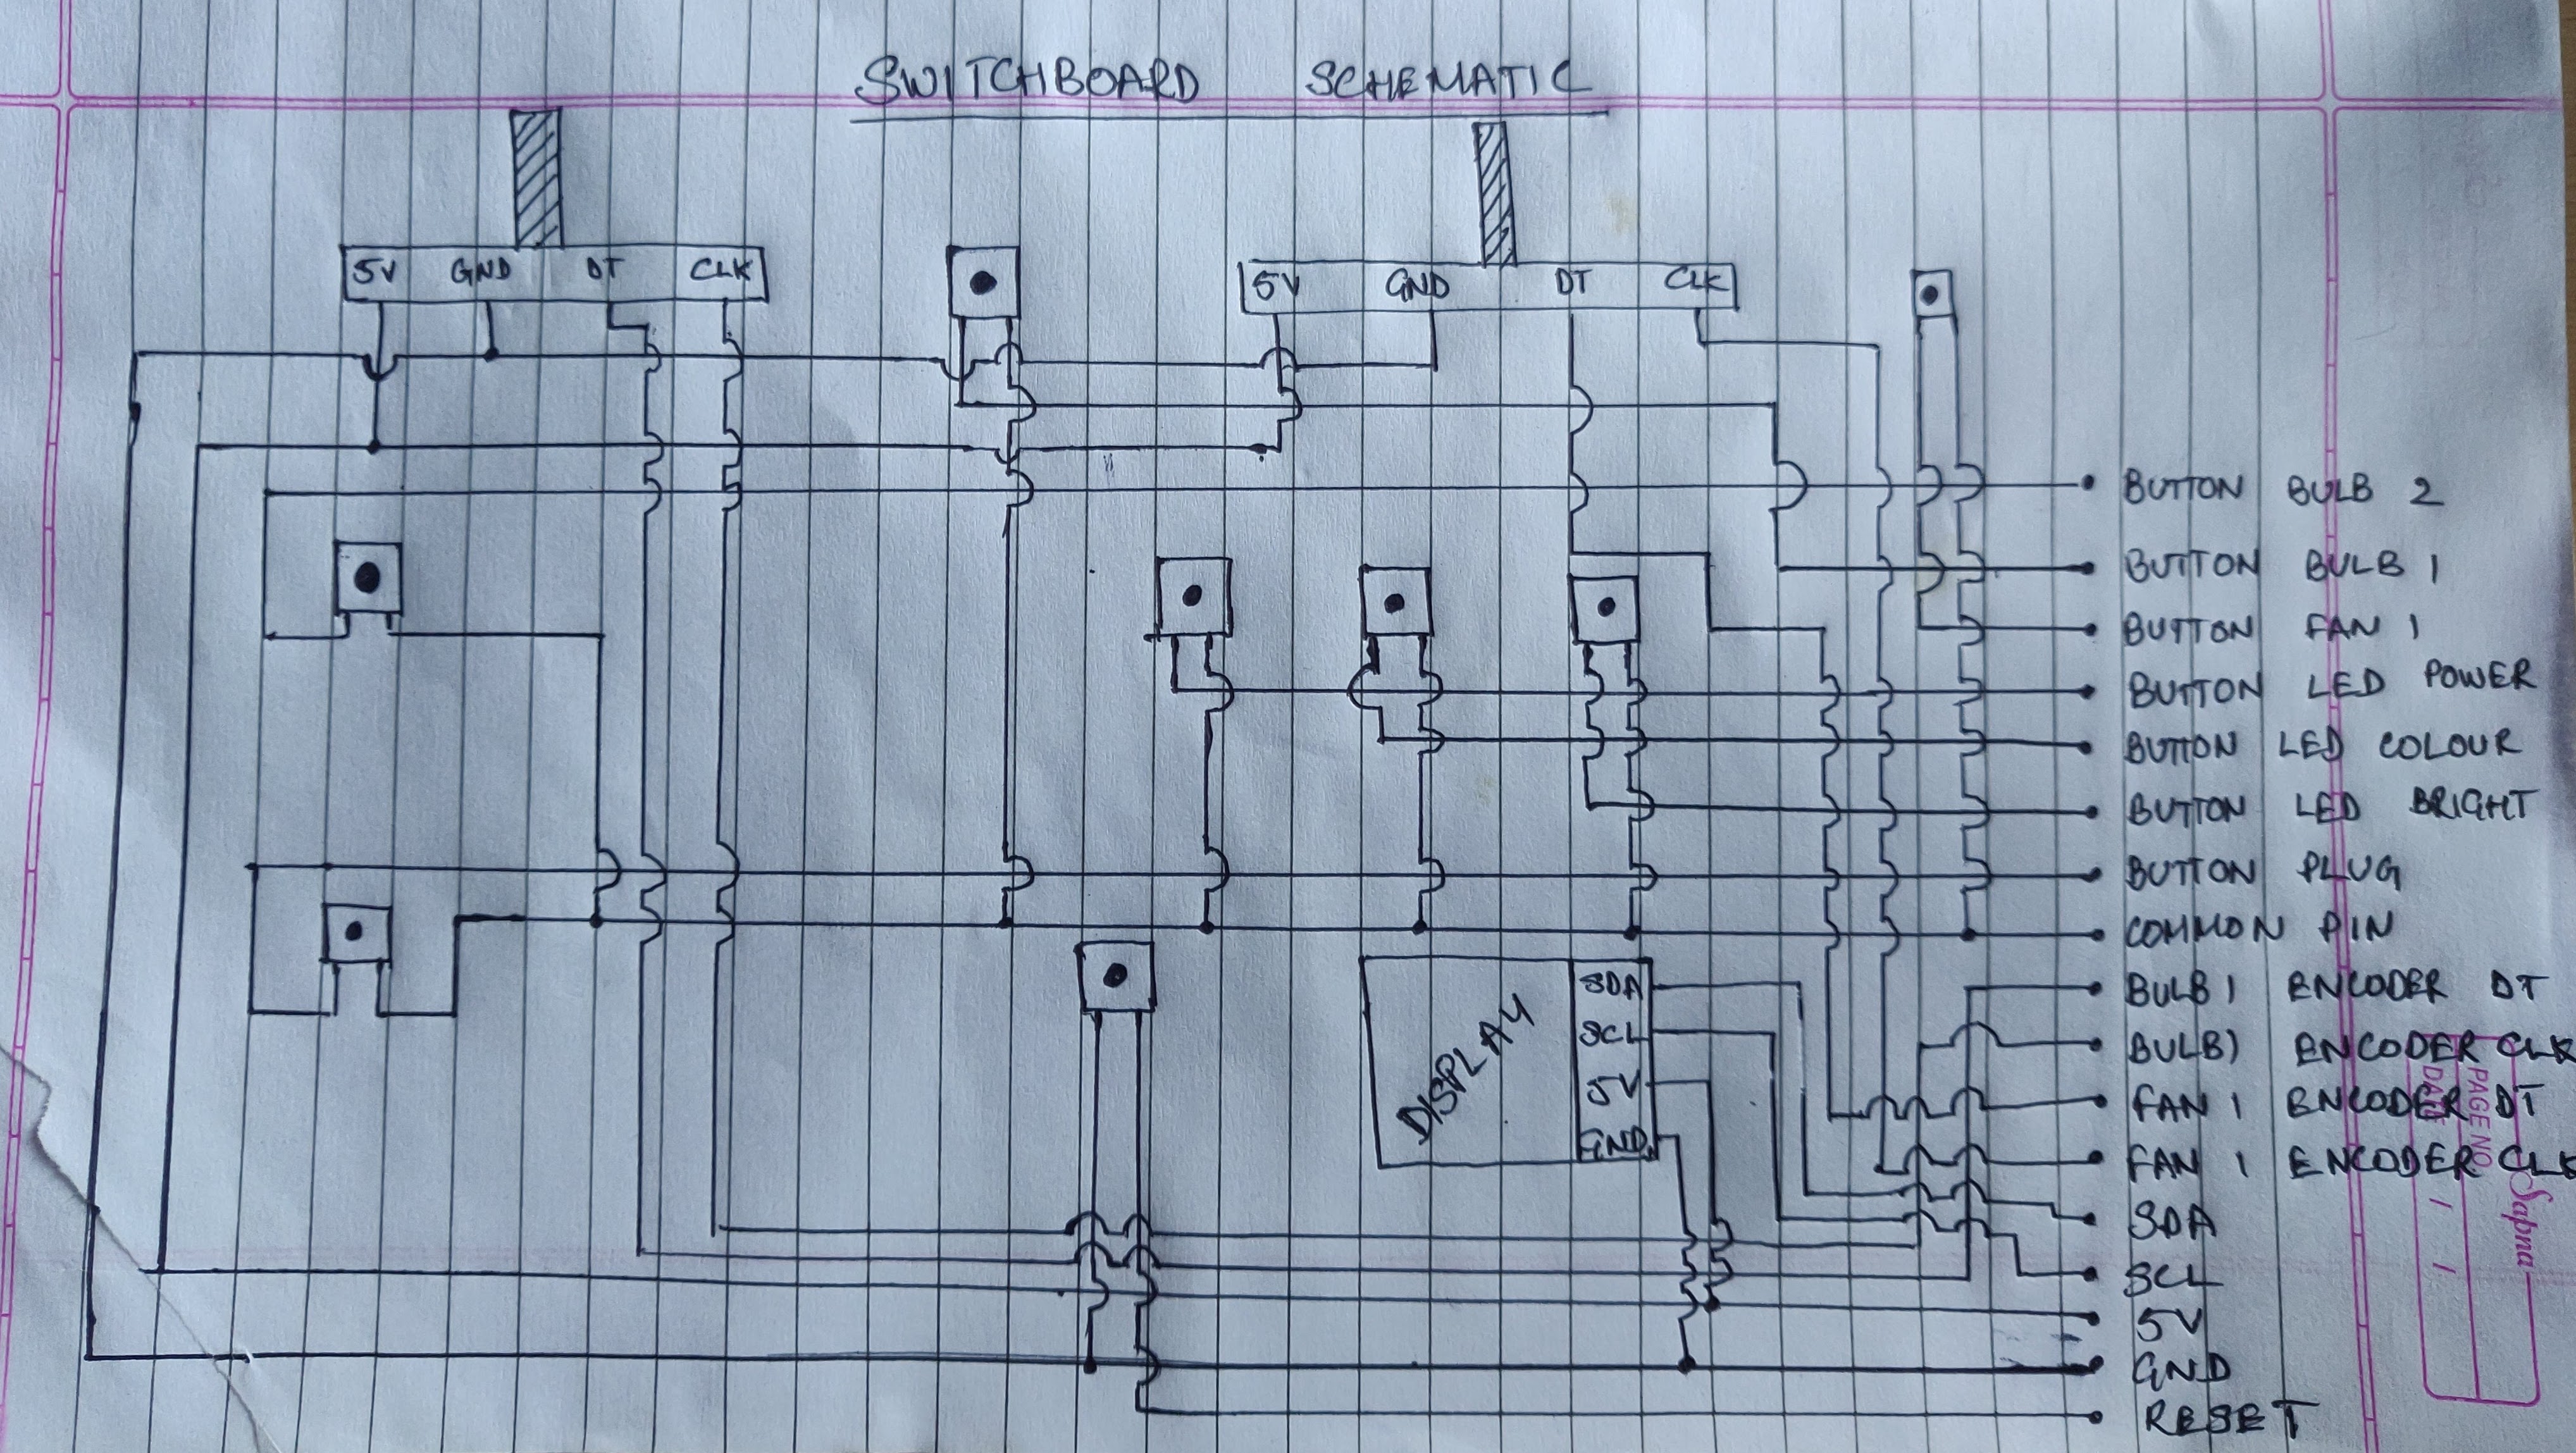 SWITCHBOARD SCHEMATIC
5V GND DT CLK
5V GND DT CLK
BUTTON BULB 2
BUTTON BULB 1
BUTTON FAN 1
BUTTON LED POWER
BUTTON LED COLOUR
BUTTON LED BRIGHT
BUTTON PLUG
COMMON PIN
DISPLAY
SDA
SCL
5V
GND
BULB 1 ENCODER DT
BULB 1 ENCODER CLK
FAN 1 ENCODER DT
FAN 1 ENCODER CLK
SDA
SCL
5V
GND
RESET
Sapna
PAGE NO.
DATE / /